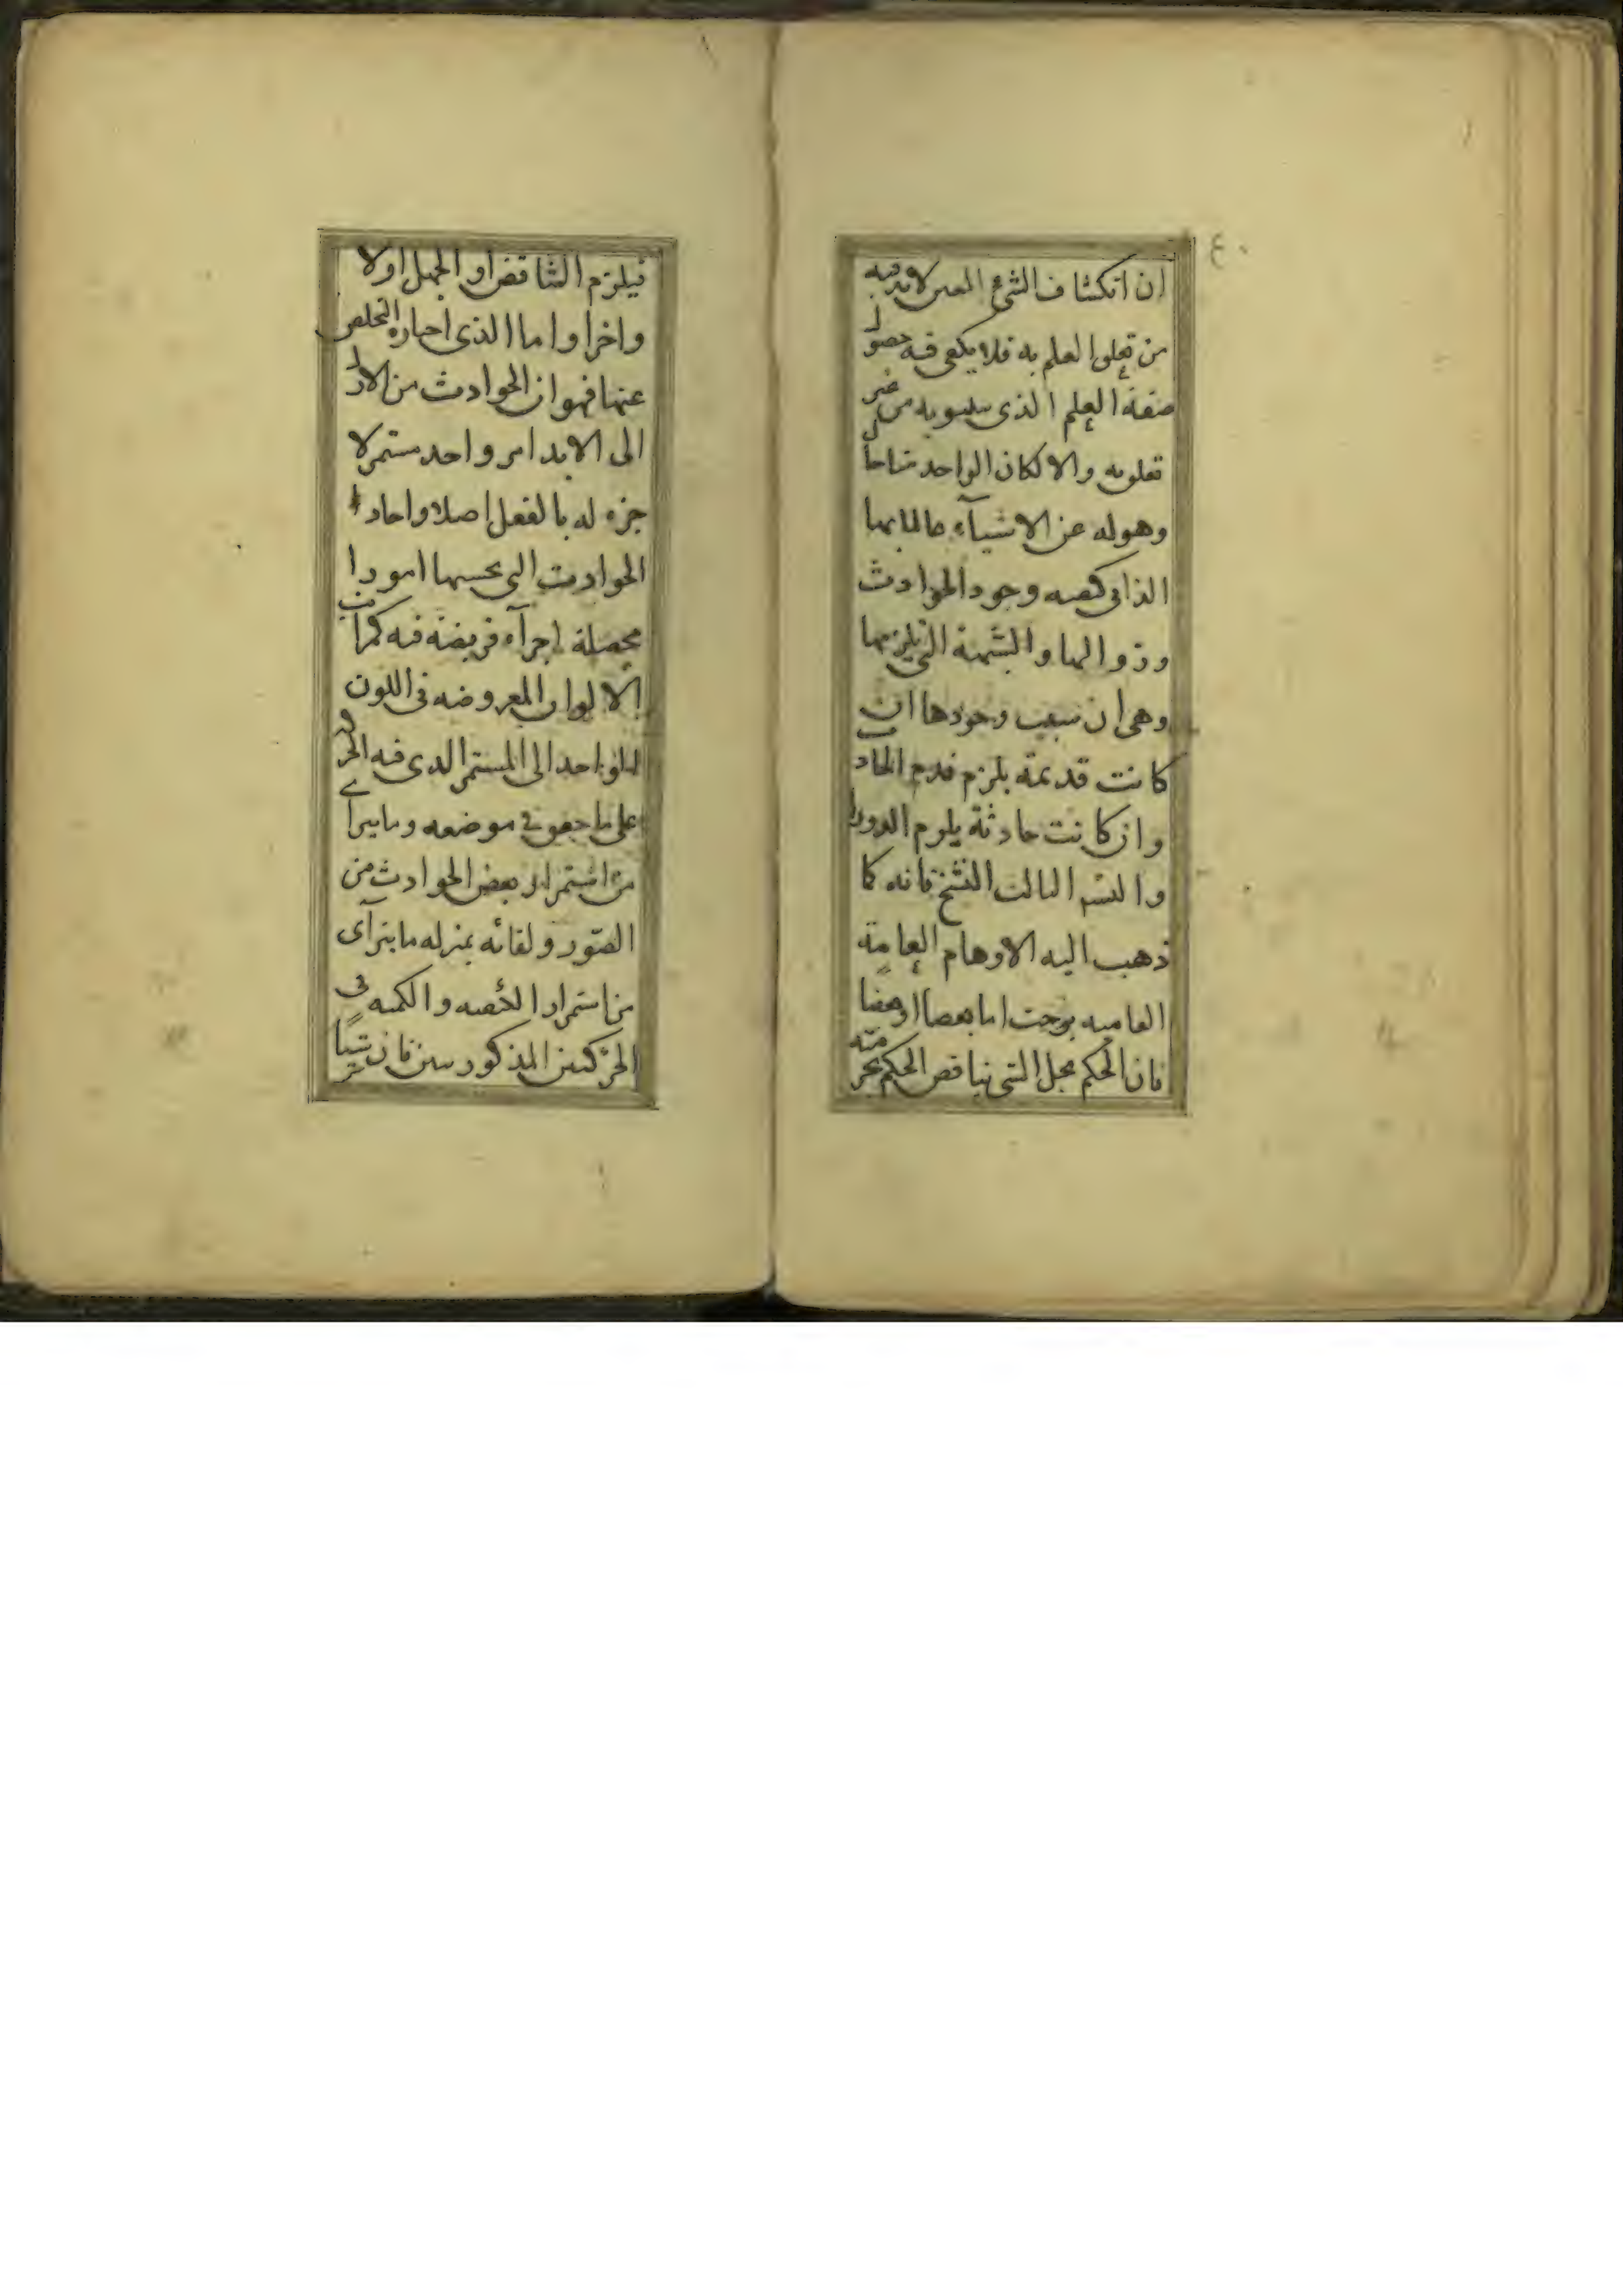 ٤٠
ان انكشاف الشئ المعين لابد فيه
من تعلق العلم به فلا يكفى فيه حصول
صفة العلم الذى من غير
تعلق به والا لكان الواحد منا حال
وهوله عن الاشيآء عالما بها
وجود الحوادث
وزوالها والشبهة التى يلزمها
وهى ان سبب وجودها ان
كانت قديمة يلزم قدم الحادث
وان كانت حادثة يلزم الدور
الثالث النسخ فانه كما
ذهب اليه الاوهام العامة
العامية يوجب اما او
فان الحكم بحل الشى يناقض الحكم بحرمته
فيلزم التناقض او الجهل اولا
واخرا واما الذى اختاره التخلص
عنها فهو ان الحوادث من الازل
الى الابد امر واحد مستمر لا
جزء له بالفعل اصلا واحاد
الحوادث التى يحسبها امورا
محصلة اجزآء فرضية فيه كمراتب
الالوان المعروضه فى اللون
الواحد الى المستمر الذى فيه الحركة
على ما حقق فى موضعه وما يترآى
من استمرار بعض الحوادث من
الصور وبقائه بمنزله ما يترآى
من استمرار والكميه فى
الحركتين المذكورتين فان شيئا